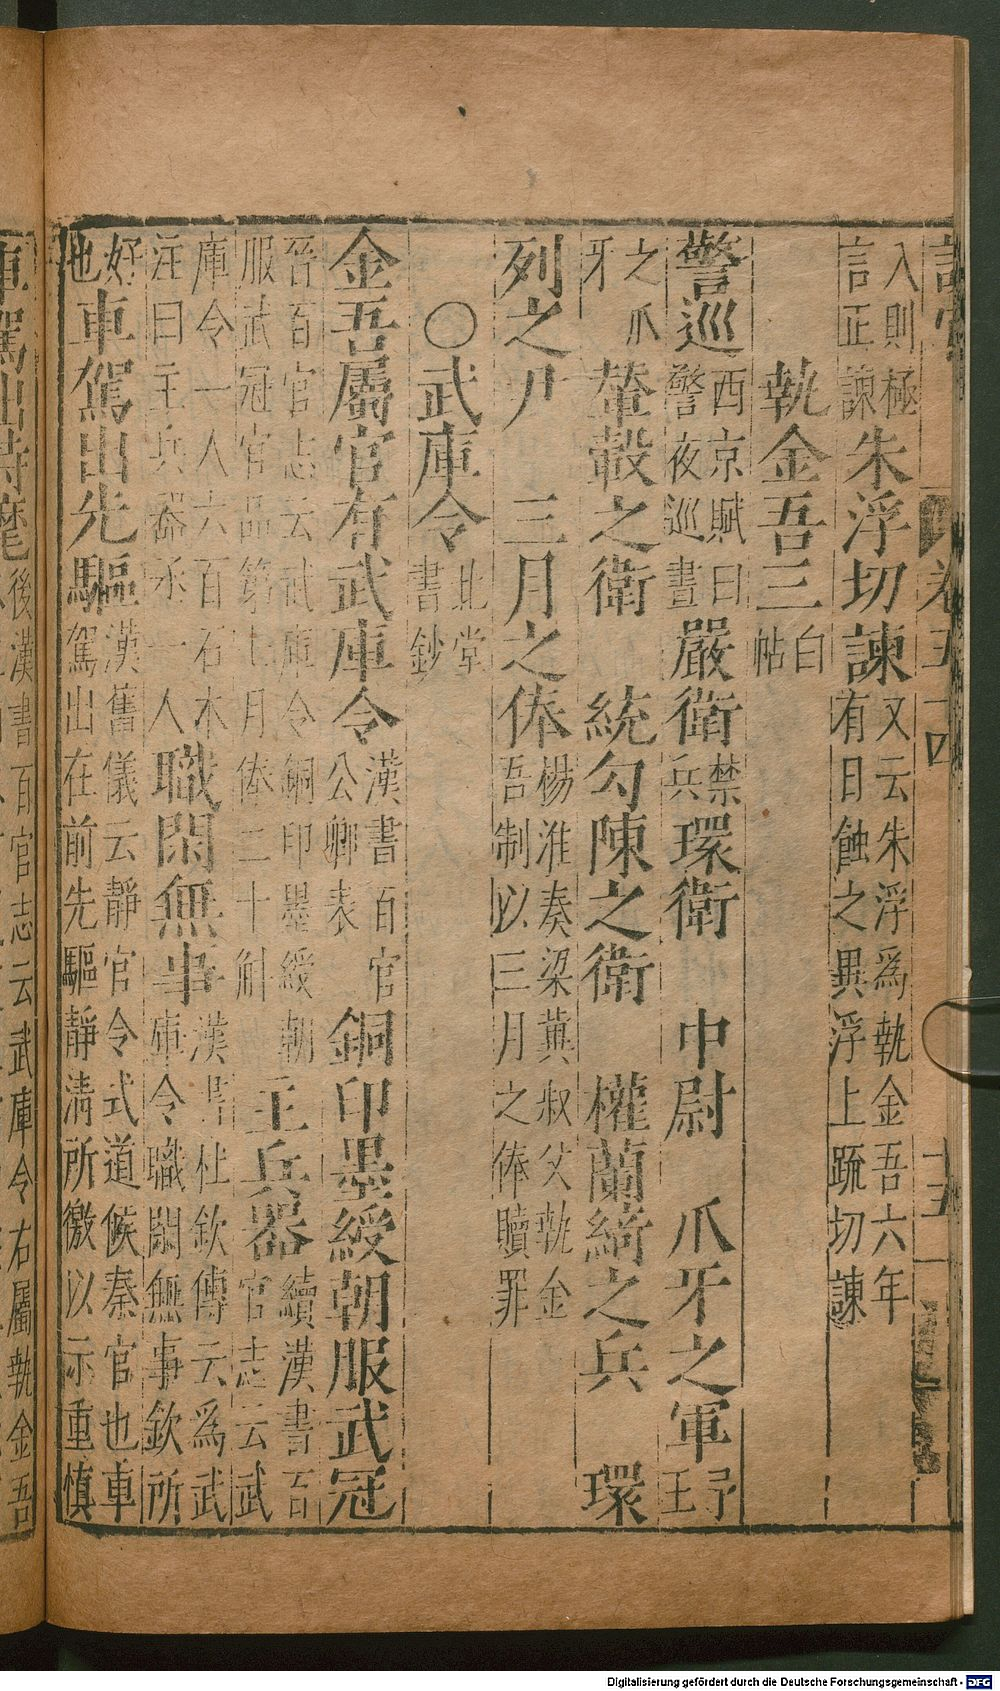 卷五十四 十五
入則極
言正諫
朱浮切諫
又云朱浮爲執金吾六年
有日蝕之異浮上疏切諫
執金吾三
白
帖
警巡
西京賦曰
警夜巡晝
嚴衛
禁
兵
環衛 中尉 爪牙之軍
予
王
之爪
牙
輦轂之衛 統勾陳之衛 權蘭綺之兵 環
列之尹 三月之俸
楊淮奏梁冀叔父執金
吾制以三月之俸贖罪
○武庫令
北堂
書鈔
金吾屬官有武庫令
漢書百官
公卿表
銅印墨綬朝服武冠
晉百官志云武庫令銅印墨綬朝
服武冠官品第七月俸二十斛
主兵器
續漢書百
官志云武
庫令一人六百石本
注曰主兵器丞一人
職閑無事
漢書杜欽傳云爲武
庫令職閑無事欽所
好
也
車駕出先驅
漢舊儀云靜官令式道候秦官也車
駕出在前先驅靜淸所徼以示重慎
車駕出時麾
後漢書百官志云武庫令右屬執金吾
Digitalisierung gefördert durch die Deutsche Forschungsgemeinschaft - DFG